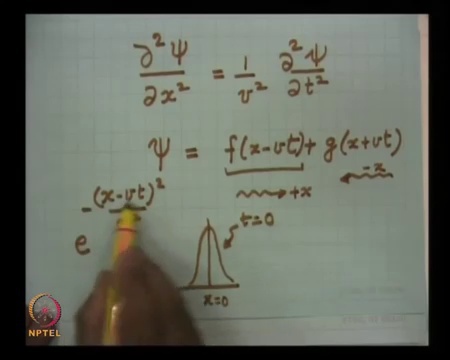 ∂²Ψ/∂x² = 1/v² ∂²Ψ/∂t²
Ψ = f(x-vt) + g(x+vt)
→ +x
← -x
e^-(x-vt)²
t=0
x=0
NPTEL